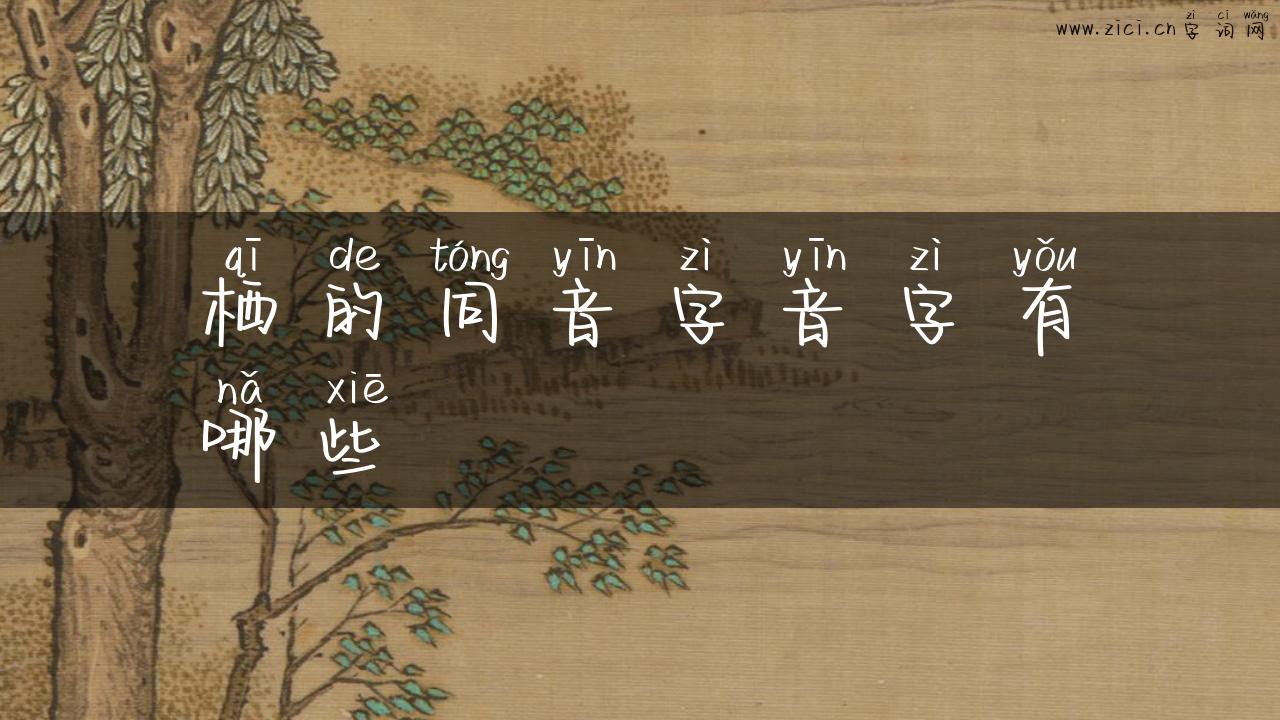 zì cí wǎng
www.zici.cn 字词网
qī de tóng yīn zì yīn zì yǒu
栖的同音字音字有
nǎ xiē
哪些